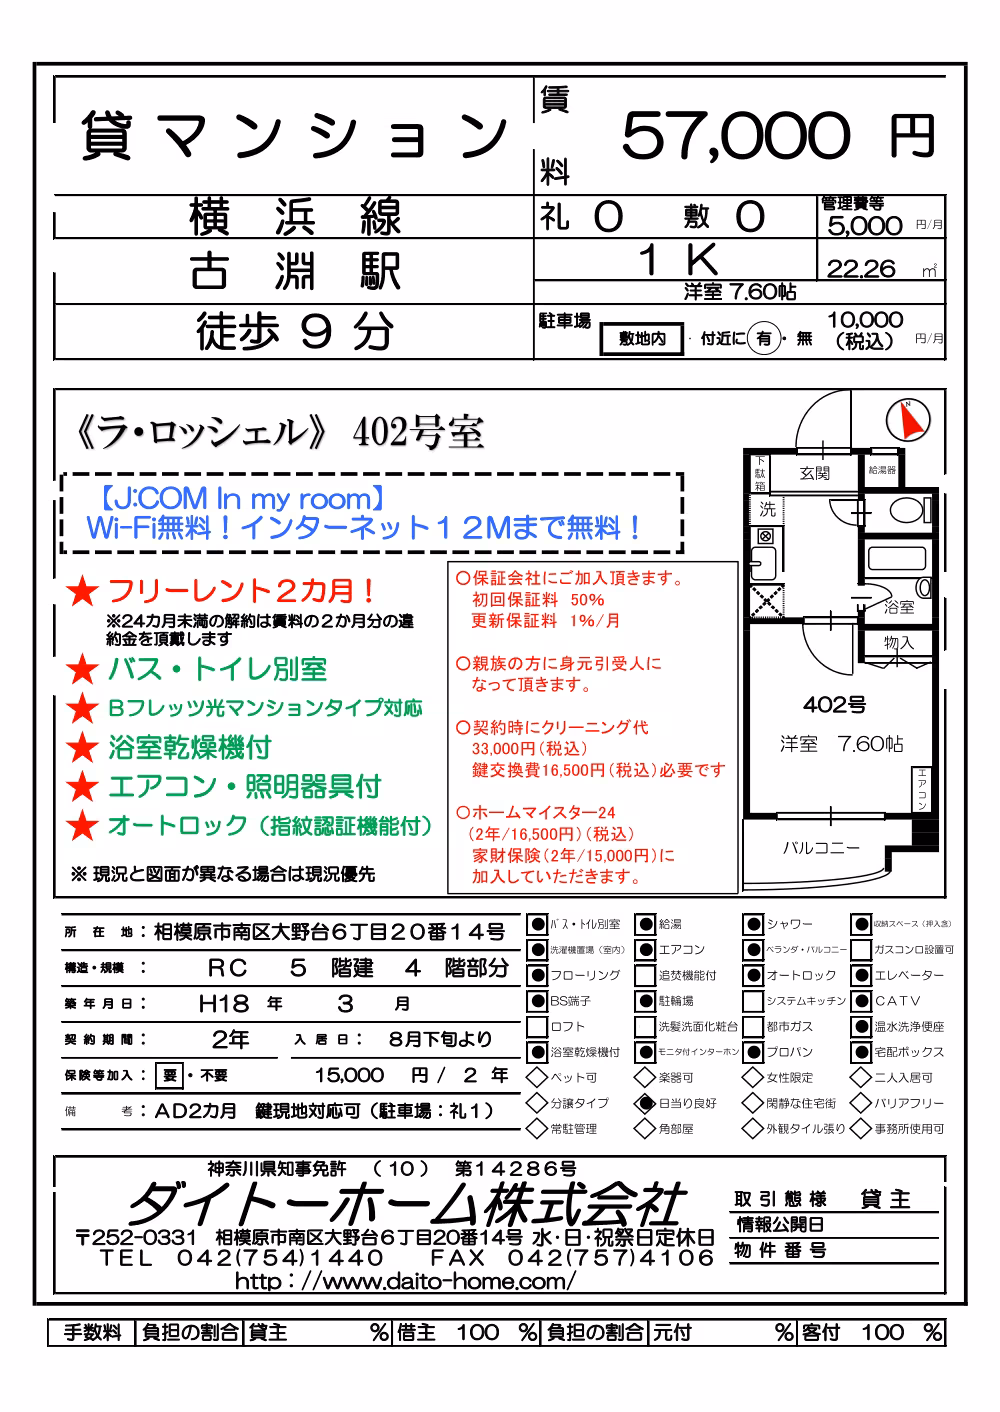 貸マンション
賃料 57,000 円
横浜線
礼 0 敷 0
管理費等 5,000 円/月
古淵駅
1K
22.26 ㎡
洋室 7.60帖
徒歩 9 分
駐車場 敷地内 ・ 付近に 有 ・ 無 10,000 (税込) 円/月
《ラ・ロッシェル》 402号室
【J:COM In my room】
Wi-Fi無料！インターネット12Mまで無料！
★ フリーレント2カ月！
※24カ月未満の解約は賃料の2か月分の違
約金を頂戴します
★ バス・トイレ別室
★ Bフレッツ光マンションタイプ対応
★ 浴室乾燥機付
★ エアコン・照明器具付
★ オートロック（指紋認証機能付）
※ 現況と図面が異なる場合は現況優先
○保証会社にご加入頂きます。
初回保証料 50%
更新保証料 1%/月
○親族の方に身元引受人に
なって頂きます。
○契約時にクリーニング代
33,000円(税込)
鍵交換費16,500円(税込)必要です
○ホームマイスター24
(2年/16,500円)(税込)
家財保険(2年/15,000円)に
加入していただきます。
N
下駄箱
玄関
給湯器
洗
浴室
物入
402号
洋室 7.60帖
エアコン
バルコニー
所在地：相模原市南区大野台6丁目20番14号
構造・規模： RC 5 階建 4 階部分
築年月日： H18 年 3 月
契約期間： 2年 入居日： 8月下旬より
保険等加入： 要 ・不要 15,000 円 / 2 年
備考：AD2カ月 鍵現地対応可（駐車場：礼1）
バス・トイレ別室 給湯 シャワー 収納スペース（押入含）
洗濯機置場（室内） エアコン ベランダ・バルコニー ガスコンロ設置可
フローリング 追焚機能付 オートロック エレベーター
BS端子 駐輪場 システムキッチン CATV
ロフト 洗髪洗面化粧台 都市ガス 温水洗浄便座
浴室乾燥機付 モニタ付インターホン プロパン 宅配ボックス
ペット可 楽器可 女性限定 二人入居可
分譲タイプ 日当り良好 閑静な住宅街 バリアフリー
常駐管理 角部屋 外観タイル張り 事務所使用可
神奈川県知事免許 （10） 第14286号
ダイトーホーム株式会社
〒252-0331 相模原市南区大野台6丁目20番14号 水・日・祝祭日定休日
TEL 042(754)1440 FAX 042(757)4106
http：//www.daito-home.com/
取引態様 貸主
情報公開日
物件番号
手数料 負担の割合 貸主 % 借主 100 % 負担の割合 元付 % 客付 100 %